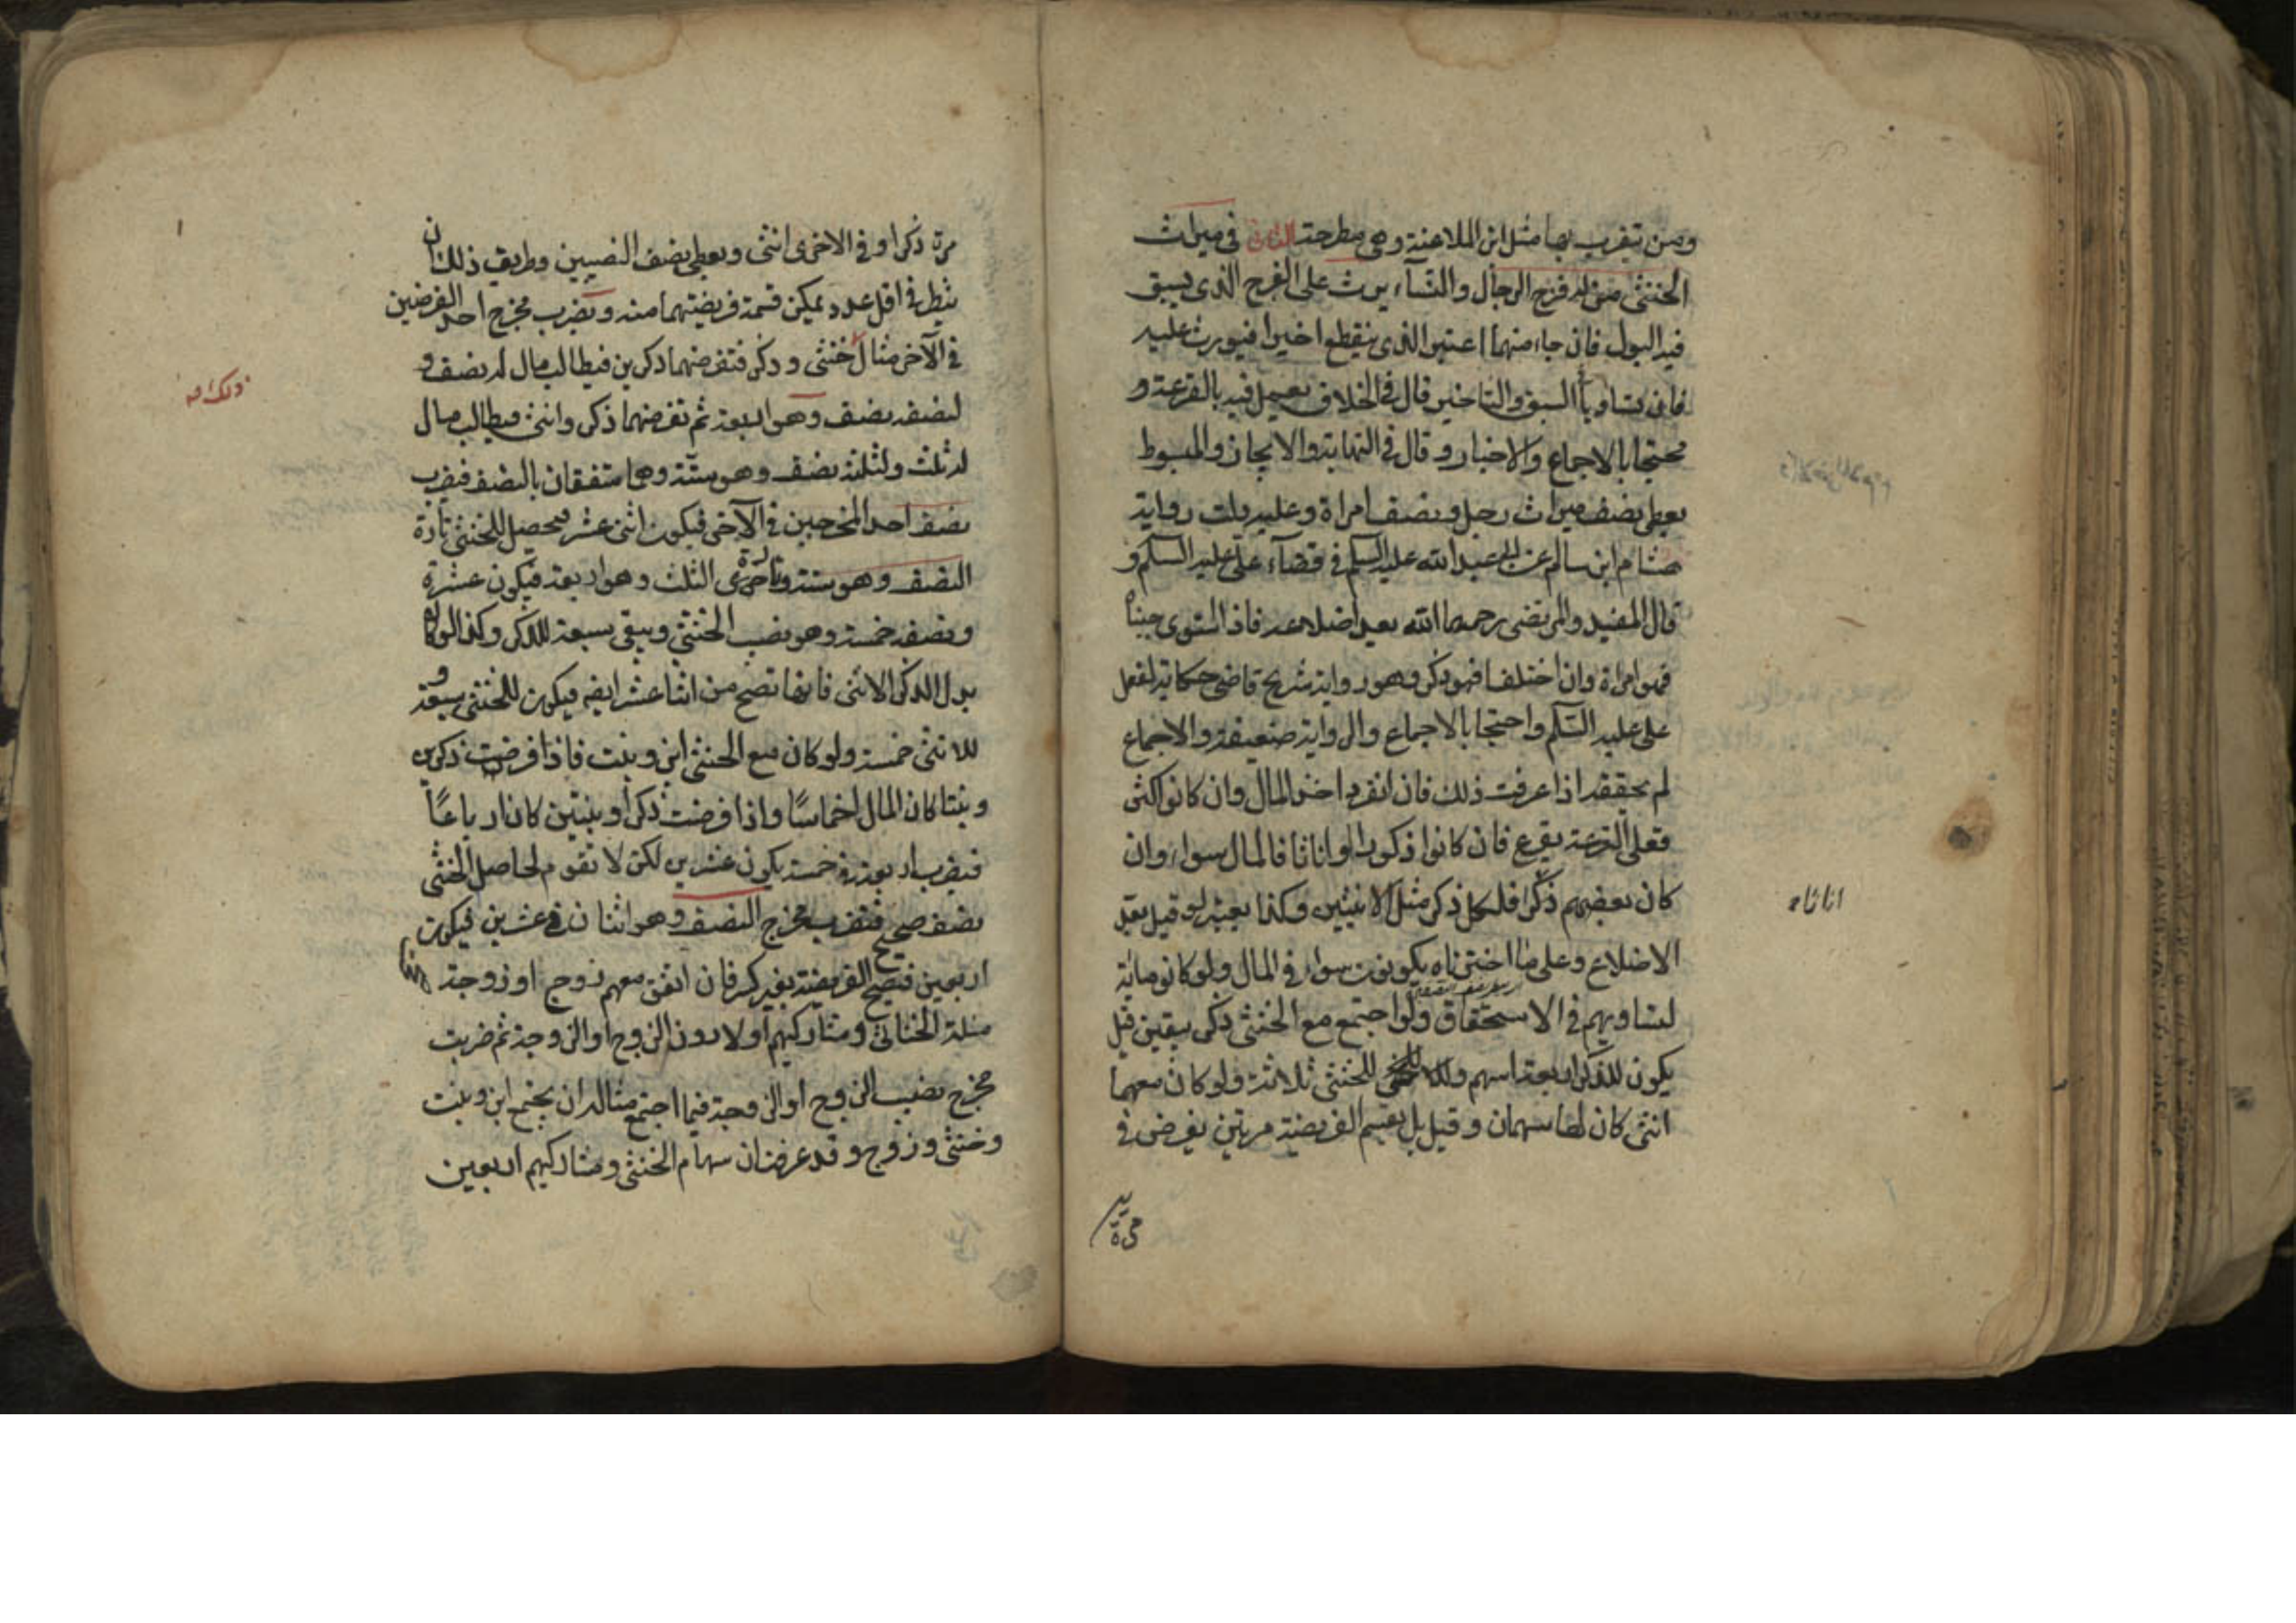 ومن تيقرب بها مثل ابن الملاعنة وهي مطرحة الثاني في ميراث
الخنثى من له فرج الرجال والنسآء يرث على الفرج الذى يسبق
فيه البول فان جاء منهما اعتبر الذى ينقطع اخيرا فيورث عليه
فان تساويا السبق والتاخير قال في الخلاف يعمل فيه بالقرعة و
محتجا بالاجماع والاخبار و قال في النهاية والايجاز والمبسوط
يعطى نصف ميراث رجل ونصف امراة وعليه دلت رواية
هشام ابن سالم عن ابى عبد الله عليه السلم في قضآء على عليه السلم و
قال المفيد والمرتضى رحمهما الله بعد اضلاعه فاذا استوى جنباه
فهو امراة وان اختلفا فهو ذكر وهو رواية شريح قاضى حكاية لفعل
على عليه السلم واحتجا بالاجماع والرواية ضعيفة والاجماع
لم نحققه اذا عرفت ذلك فان انفرد اخذ المال وان كانوا اكثر
فعلى القرعة يقرع فان كانوا ذكورا او اناثا فالمال سواء وان
كان بعضهم ذكرا فلكل ذكر مثل الانثيين وكذا يعتبر لو قيل بعد
الاضلاع وعلى ما اخترناه يكونون سواء في المال ولو كانو مائة
لتساويهم في الاستحقاق ولو اجتمع مع الخنثى ذكر بيقين قيل
يكون للذكر اربعة اسهم وللخنثى ثلاثة ولو كان معهما
انثى كان لها سهمان و قيل بل تقسم الفريضة مرتين يفرض في
اناثا
مرة
مرة ذكرا و في الاخرى انثى ويعطى نصف النصيبين وطريق ذلك ان
ينظر في اقل عدد يمكن قسمة فريضتهما منه و يضرب مخرج احد الفرضين
في الآخر مثال خنثى و ذكر فتفرضهما ذكرين فيطالب مال له نصف و
لنصفه نصف وهو اربعة ثم تفرضهما ذكر وانثى فيطالب مال
له ثلث ولثلثه نصف وهو ستة وهما متفقان بالنصف فيضرب
نصف احد المخرجين في الآخر فيكون اثنى عشر يحصل للخنثى تارة
النصف وهو ستة وتارة اخرى الثلث وهو اربعة فيكون عشرة
ونصفه خمسة وهو نصيب الخنثى ويبقى سبعة للذكر وكذا لو كان
بدل الذكر الانثى فانها تصح من اثنا عشر ايضه فيكون للخنثى سبعة و
للانثى خمسة ولو كان مع الخنثى ابن و بنت فاذا فرضت ذكرين
وبنتا كان المال اخماسا واذا فرضت ذكرا وبنتين كان ارباعا
فيضرب اربعة في خمسة يكون عشرين لكن لا تقوم لحاصل الخنثى
نصف صحيح فتضرب مخرج النصف وهو اثنان في عشرين فيكون
اربعين فتصح الفريضة بغير كسر فان اتفق معهم زوج او زوجة
مسلة الخناثى ومشاركيهم اولا دون الزوج او الزوجة ثم ضربت
مخرج نصيب الزوج او الزوجة فيما اجتمع مثاله ان يجتمع ابن وبنت
وخنثى وزوج وقد عرفت ان سهام الخنثى ومشاركيهم اربعين
ذلك